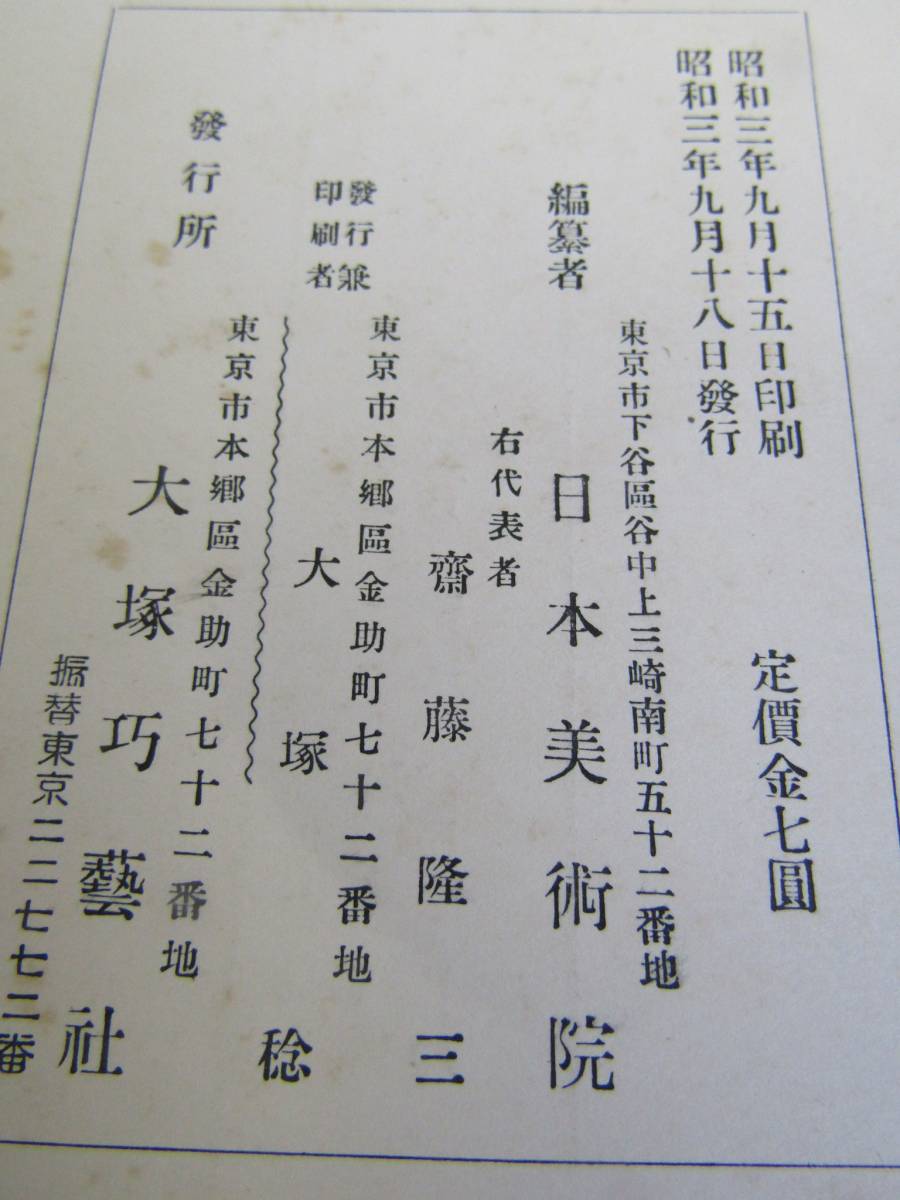 昭和三年九月十五日印刷
昭和三年九月十八日發行
定價金七圓
東京市下谷區谷中上三崎南町五十二番地
編纂者
日本美術院
右代表者
齋藤隆三
東京市本郷區金助町七十二番地
發行兼
印刷者
大塚稔
東京市本郷區金助町七十二番地
發行所
大塚巧藝社
振替東京二二七七二番